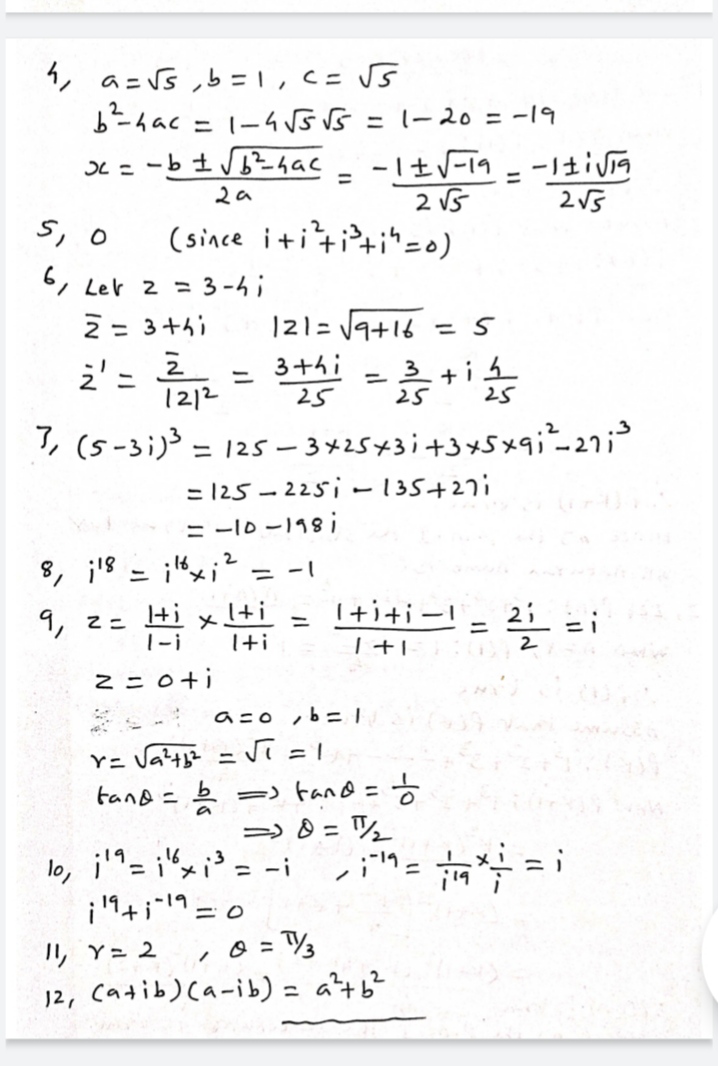 4, a = √5 , b = 1 , c = √5
b² - 4ac = 1 - 4 √5 √5 = 1 - 20 = -19
x = (-b ± √(b² - 4ac)) / 2a = (-1 ± √-19) / 2√5 = (-1 ± i√19) / 2√5
5, 0 (since i + i² + i³ + i⁴ = 0)
6, Let z = 3 - 4i
z̄ = 3 + 4i |z| = √(9+16) = 5
z⁻¹ = z̄ / |z|² = (3+4i) / 25 = 3/25 + i 4/25
7, (5-3i)³ = 125 - 3×25×3i + 3×5×9i² - 27i³
= 125 - 225i - 135 + 27i
= -10 - 198i
8, i¹⁸ = i¹⁶ × i² = -1
9, z = (1+i)/(1-i) × (1+i)/(1+i) = (1+i+i-1)/(1+1) = 2i/2 = i
z = 0 + i
a = 0 , b = 1
r = √(a²+b²) = √1 = 1
tanθ = b/a ⟹ tanθ = 1/0
⟹ θ = π/2
10, i¹⁹ = i¹⁶ × i³ = -i , i⁻¹⁹ = 1/i¹⁹ × i/i = i
i¹⁹ + i⁻¹⁹ = 0
11, r = 2 , θ = π/3
12, (a+ib)(a-ib) = a² + b²